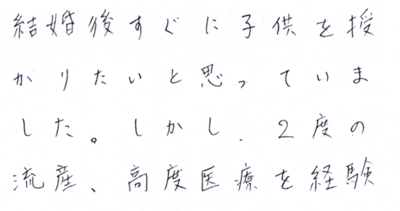 結婚後すぐに子供を授
かりたいと思っていま
した。しかし、2度の
流産、高度医療を経験